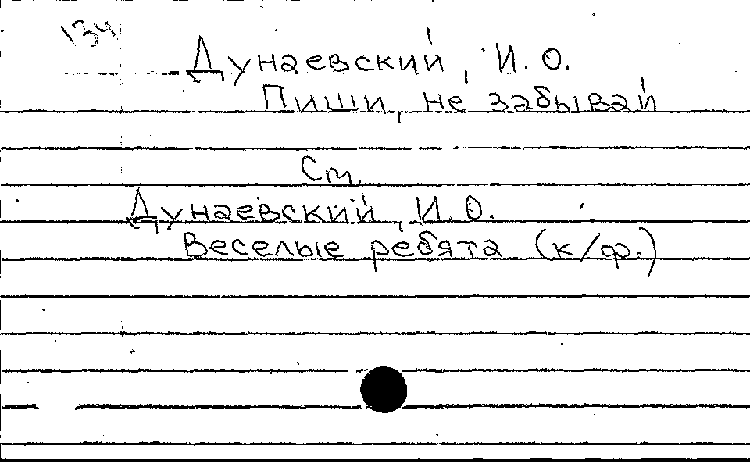 134
Дунаевский, И. О.
Пиши, не забывай
См.
Дунаевский, И. О.
Веселые ребята (к/ф.)